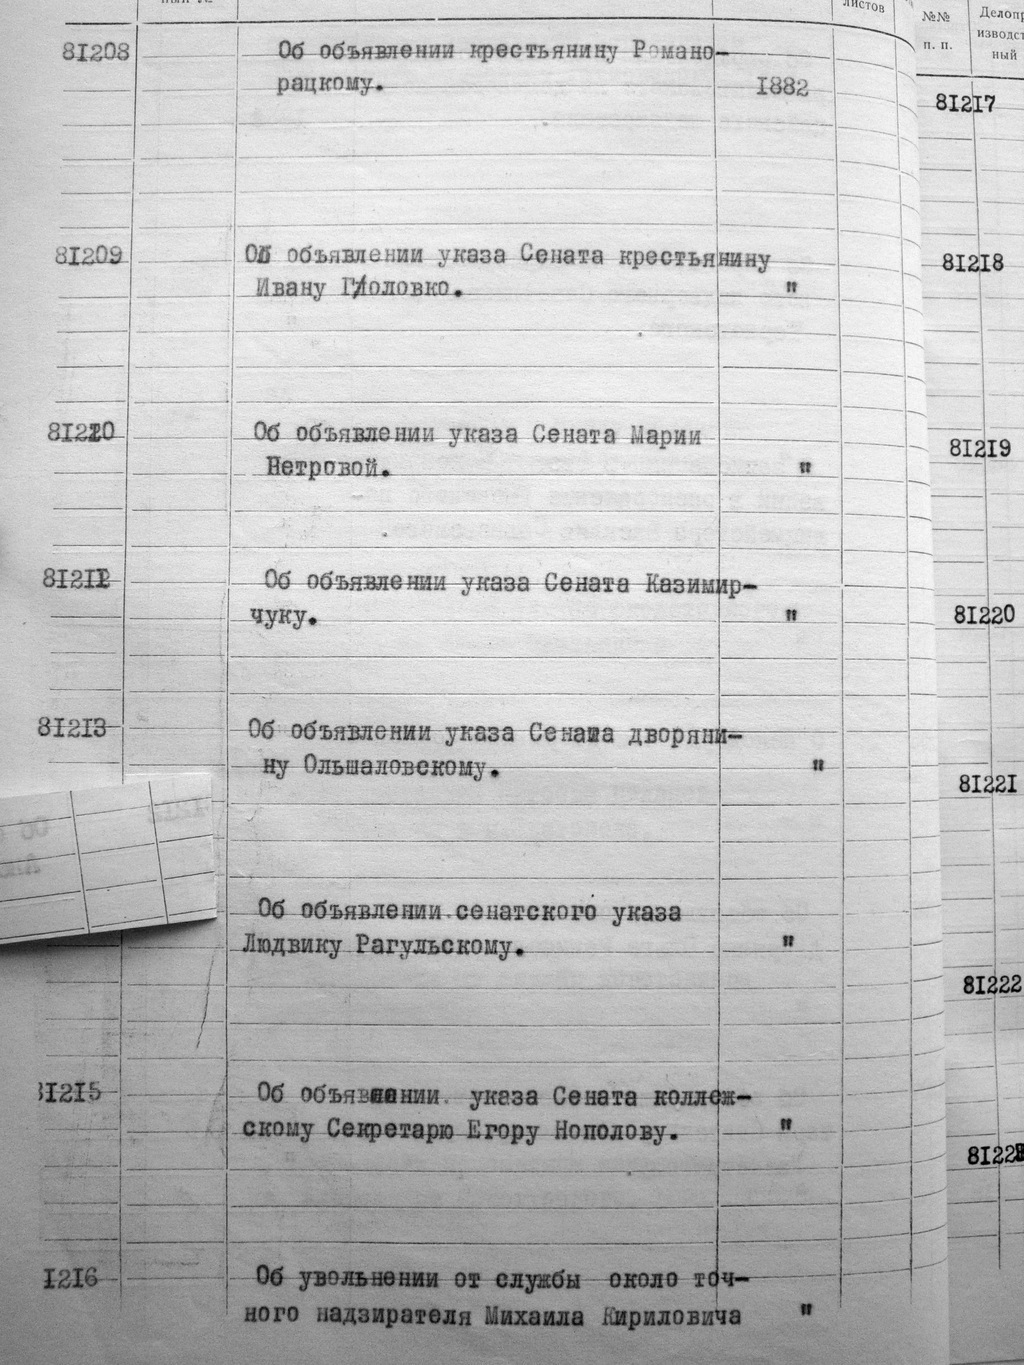 листов
№№
п. п.
Делопр
изводст
ный
81208 Об объявлении крестьянину Романо-
рацкому. 1882
81209 Об объявлении указа Сената крестьянину
Ивану Головко. "
81210 Об объявлении указа Сената Марии
Петровой. "
8121 Об объявлении указа Сената Казимир-
чуку. "
81213 Об объявлении указа Сената дворяни-
ну Ольшаловскому. "
Об объявлении сенатского указа
Людвику Рагульскому. "
1215 Об объявлении указа Сената коллеж-
скому Секретарю Егору Нополову. "
1216 Об увольнении от службы около точ-
ного надзирателя Михаила Кириловича "
81217
81218
81219
81220
81221
81222